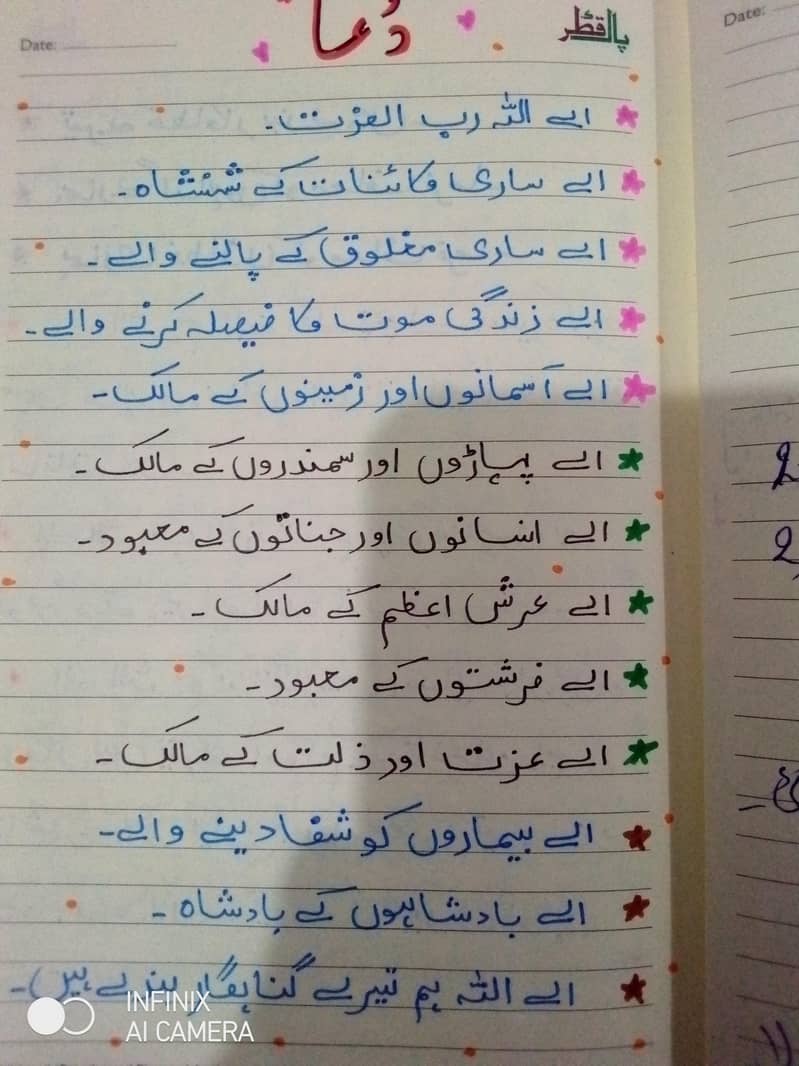 Date:
دُعا
پاک قطر
Date:
اے اللہ رب العزت۔
اے ساری کائنات کے شہنشاہ۔
اے ساری مخلوق کے پالنے والے۔
اے زندگی موت کا فیصلہ کرنے والے۔
اے آسمانوں اور زمینوں کے مالک۔
اے پہاڑوں اور سمندروں کے مالک۔
اے انسانوں اور جناتوں کے معبود۔
اے عرش اعظم کے مالک۔
اے فرشتوں کے معبود۔
اے عزت اور ذلت کے مالک۔
اے بیماروں کو شفا دینے والے۔
اے بادشاہوں کے بادشاہ۔
اے اللہ ہم تیرے گناہگار بندے ہیں۔
INFINIX
AI CAMERA